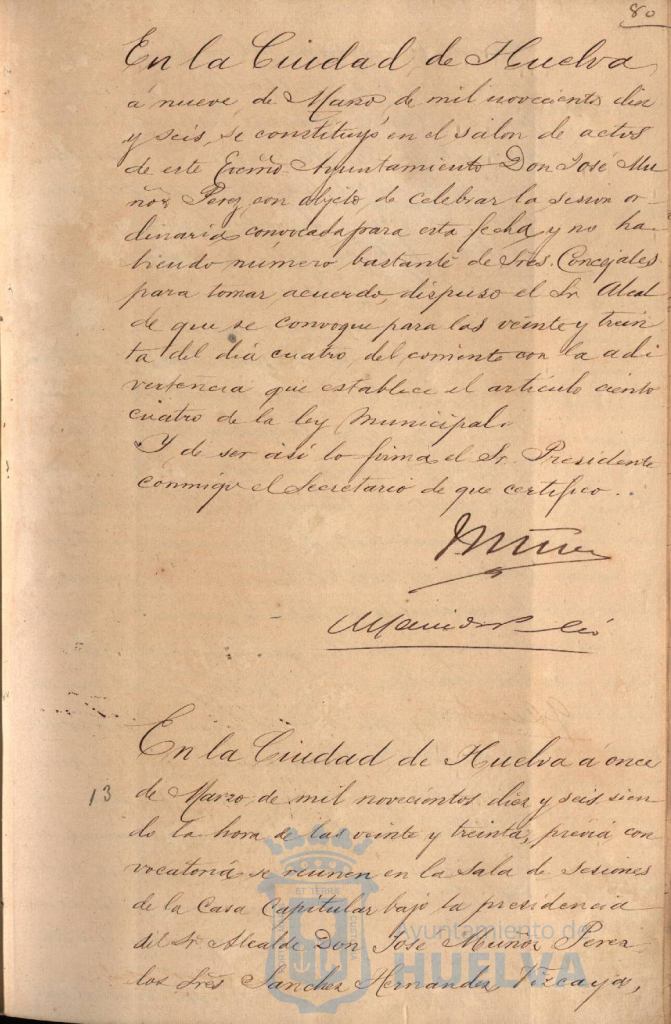 80
En la Ciudad de Huelva
á nueve de Marzo de mil novecientos diez
y seis, se constituyó en el salon de actos
de este Excmo Ayuntamiento Don José Mu-
ñoz Perez, con objeto de celebrar la sesion or-
dinaria convocada para esta fecha y no ha-
biendo número bastante de Sres. Concejales
para tomar acuerdo, dispuso el Sr. Alcal
de que se convoque para las veinte y trein
ta del dia cuatro del corriente con la adi
vertencia que establece el articulo ciento
cuatro de la ley Municipal.
Y de ser asi lo firma el Sr. Presidente
conmigo el Secretario de que certifico.
En la Ciudad de Huelva á once
13
de Marzo de mil novecientos diez y seis sien
do la hora de las veinte y treinta, prévia con
vocatoria se reunen en la sala de sesiones
de la Casa Capitular bajo la presidencia
del Sr. Alcalde Don José Muñoz Perez
los Sres Sanchez Hernandez, Vizcaya,
Ayuntamiento de
HUELVA